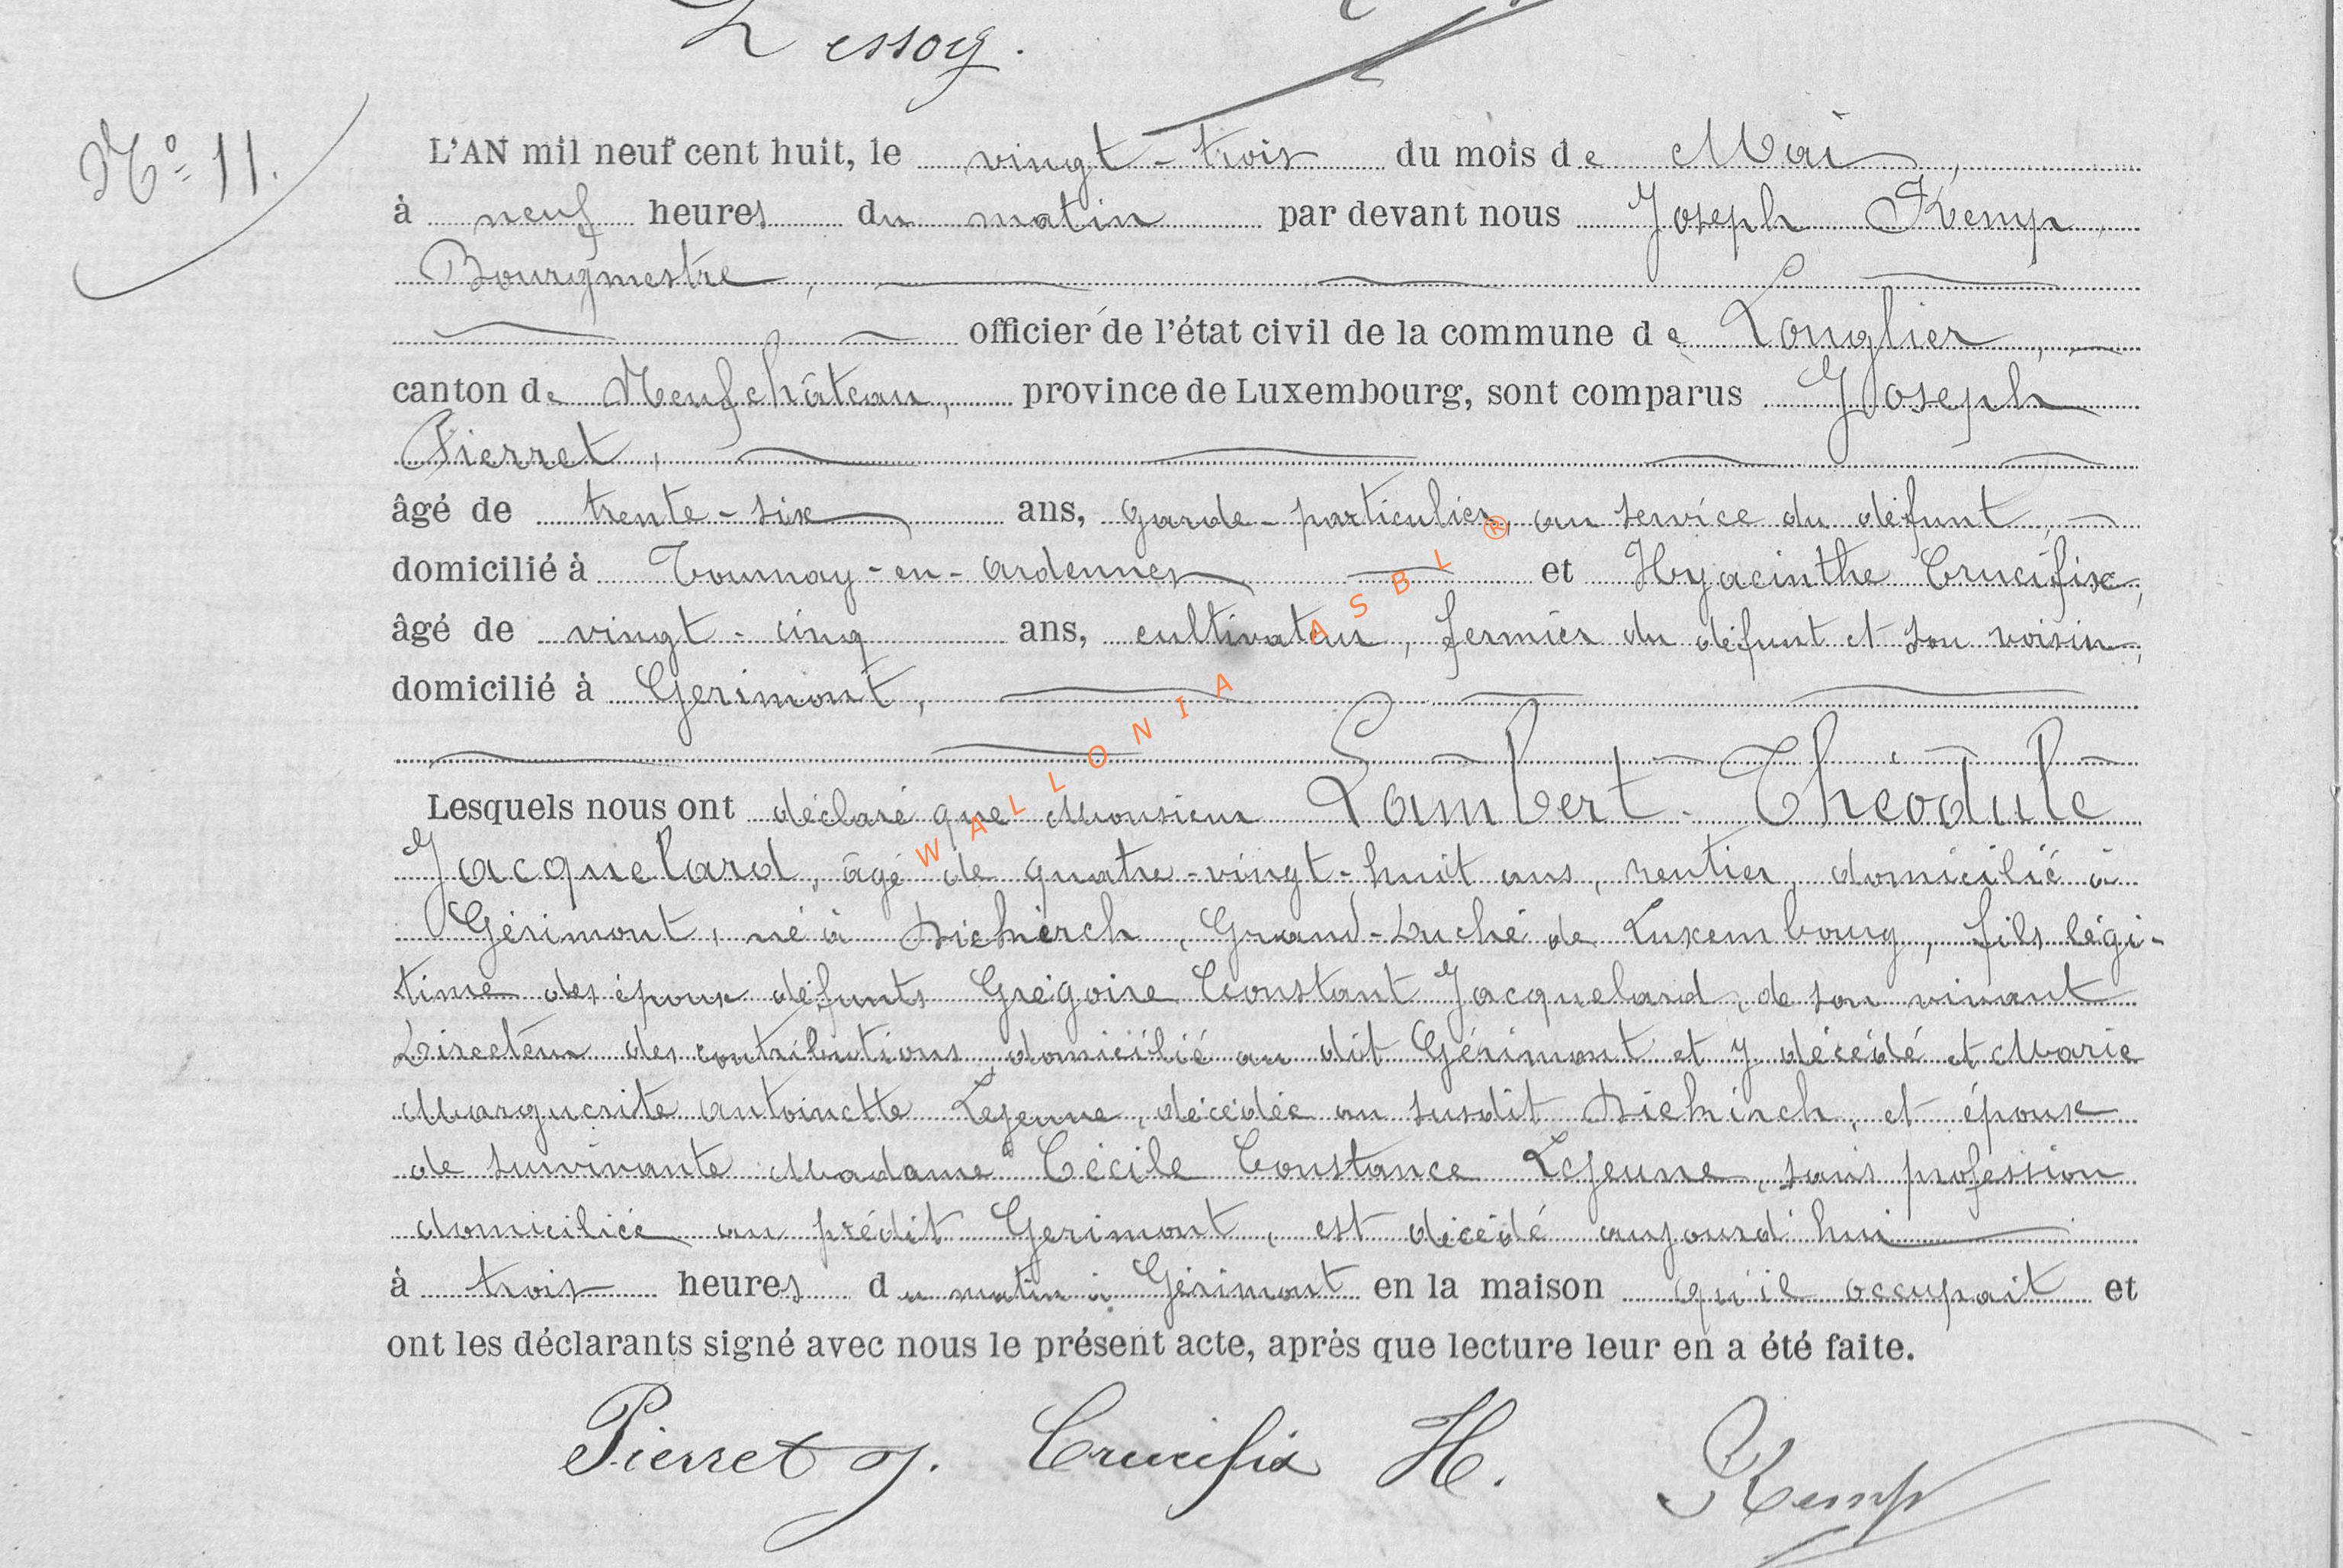 Lessocq.
N° 11.
L'AN mil neuf cent huit, le vingt-trois du mois de Mai,
à neuf heures du matin par devant nous Joseph Kemp,
Bourgmestre,
officier de l'état civil de la commune de Longlier,
canton de Neufchâteau, province de Luxembourg, sont comparus Joseph
Pierret,
âgé de trente-six ans, garde-particulier, au service du défunt,
domicilié à Tournay-en-ardennes et Hyacinthe Crucifix,
âgé de vingt-cinq ans, cultivateur, fermier du défunt et son voisin,
domicilié à Gerimont,
Lesquels nous ont déclaré que Monsieur Lambert-Théodule
Jacquelard, âgé de quatre-vingt-huit ans, rentier, domicilié à
Gérimont, né à Diekirch, Grand-Duché de Luxembourg, fils légi-
time des époux défunts Grégoire Constant Jacquelard, de son vivant
Directeur des contributions, domicilié au dit Gérimont et y décédé et Marie
Marguerite antoinette Lejeune, décédée au susdit Diekirch, et époux
de survivante Madame Cécile Constance Lejeune, sans profession
domiciliée au prédit Gerimont, est décédé aujourd'hui
à trois heures du matin à Gérimont en la maison qu'il occupait et
ont les déclarants signé avec nous le présent acte, après que lecture leur en a été faite.
Pierret J. Crucifix H. Kemp
WALLONIA ASBL ®